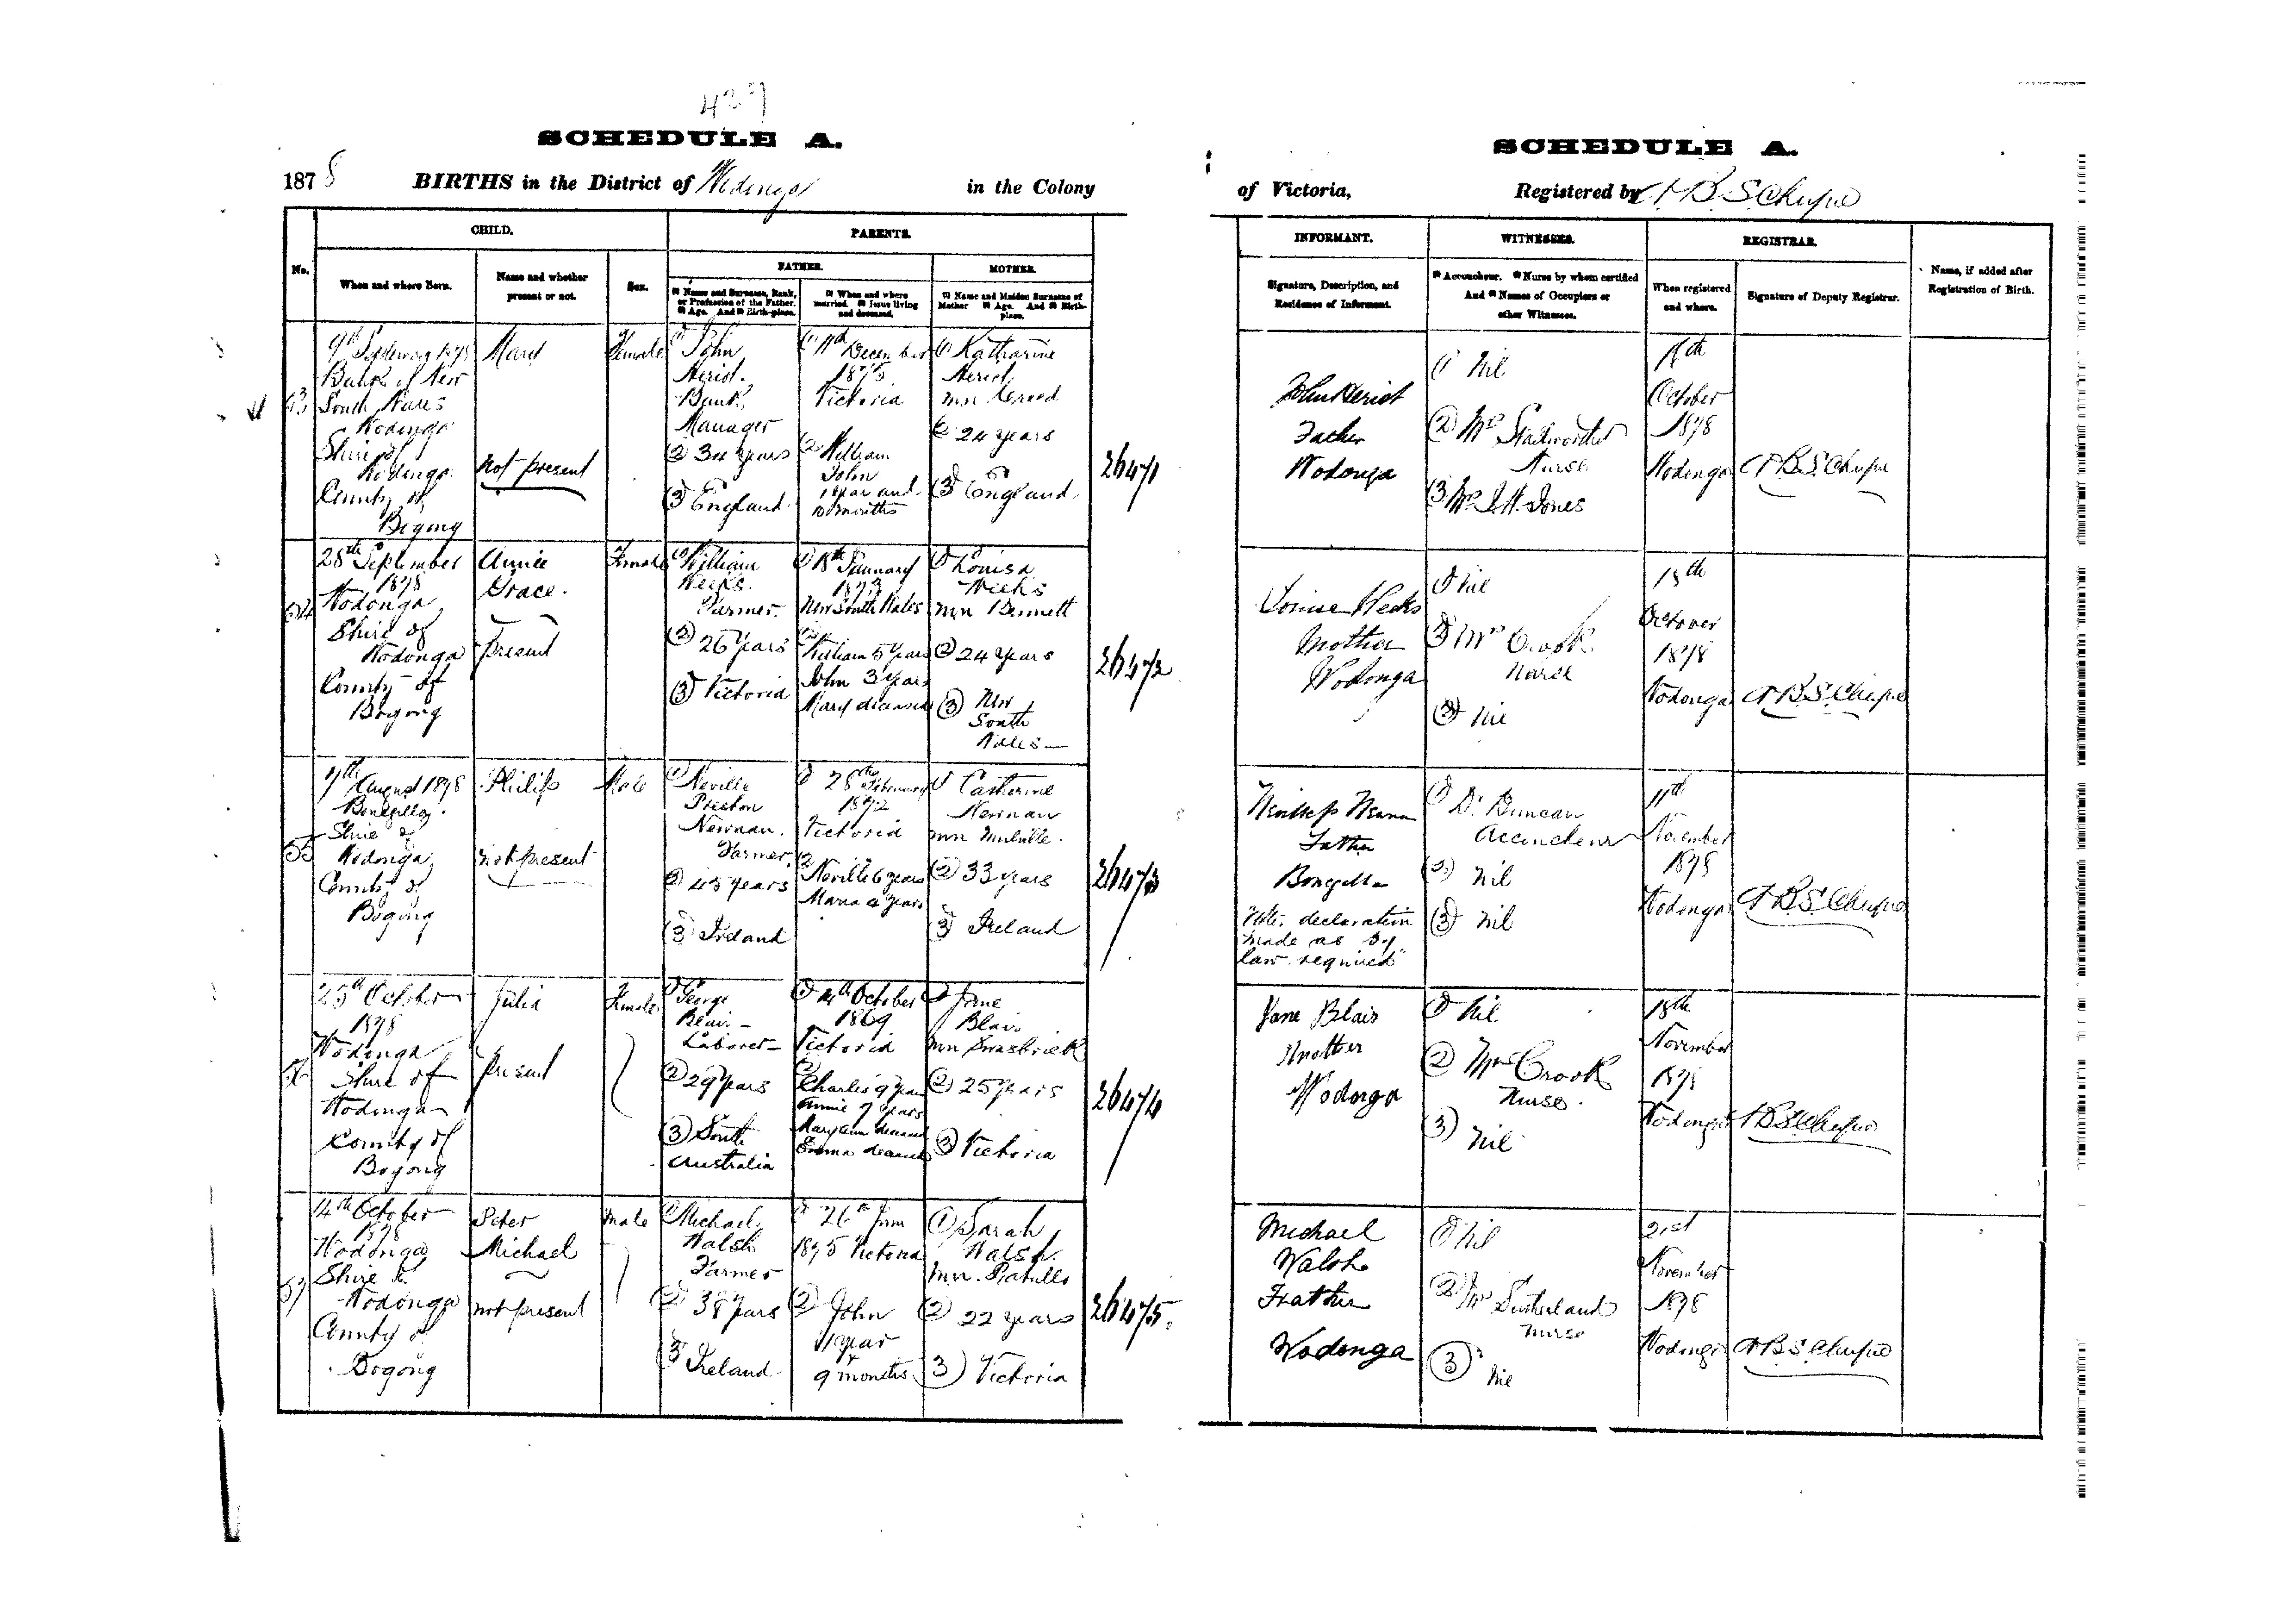 SCHEDULE A.
1878 BIRTHS in the District of Wodonga in the Colony
No.
CHILD.
PARENTS.
When and where Born.
Name and whether present or not.
Sex.
FATHER.
MOTHER.
(1) Name and Surname, Rank, or Profession of the Father. (2) Age. And (3) Birth-place.
(1) When and where married. (2) Issue living and deceased.
(1) Name and Maiden Surname of Mother (2) Age. And (3) Birth-place.
Bank of New
South Wales
Wodonga
Shire of
Wodonga
County of
Bogong
Mary
not present
Female
(1) John
Heriot.
Bank
Manager
(2) 34 years
(3) England
December
1875
Victoria
(2) William
John
1 year and
10 months
(1) Katharine
Heriot
(2) 24 years
(3) England.
26471
54
28th September
1878
Wodonga
Shire of
Wodonga
County of
Bogong
Annie
Grace.
present
Female
(1) William
Farmer.
(2) 26 years
(3) Victoria
(1) 18th January
1873
New South Wales
(2)
William 5 years
John 3 years
Mary deceased
(1) Louisa
mn Bennett
(2) 24 years
(3) New
South
Wales
26472
55
7th
August 1878
Bonegilla.
Shire of
Wodonga
County of
Bogong
Philip
not present
Male
(1) Neville
Preston
Farmer.
(2) 45 years
(3) Ireland
(1) 28th February
1872
Victoria
(2)
Neville 6 years
Maria 4 years
(1) Catherine
(2) 33 years
(3) Ireland
26473
56
25th October
1878
Wodonga
Shire of
Wodonga
County of
Bogong
Julia
Present
Female
(1) George
Blair
Laborer
(2) 29 years
(3) South
Australia
(1) 14th October
1869
Victoria
(2)
Charles 9 years
Annie 7 years
Mary Ann deceased
Emma deceased
(1) Jane
Blair
(2) 25 years
(3) Victoria
26474
57
14th October
1878
Wodonga
Shire of
Wodonga
County of
Bogong
Peter
Michael
not present
male
(1) Michael
Walsh
Farmer
(2) 38 years
(3) Ireland
1875 Victoria
(2) John
1 year
9 months
(1) Sarah
Walsh.
(2) 22 years
(3) Victoria
26475.
SCHEDULE A.
of Victoria, Registered by
INFORMANT.
WITNESSES.
REGISTRAR.
Name, if added after Registration of Birth.
Signature, Description, and Residence of Informant.
(1) Accoucheur. (2) Nurse by whom certified And (3) Names of Occupiers or other Witnesses.
When registered and where.
Signature of Deputy Registrar.
John Heriot
Father
Wodonga
(1) Nil
(2) Mrs
Nurse
(3) Mrs J.H. Jones
October
1878
Wodonga
Mother
Wodonga
(1) Nil
(2) Mrs Crook
Nurse
(3) Nil
October
1878
Wodonga
Father
Bonegilla
Note. declaration
made as by
law required
(1) Dr Duncan
Accoucheur
(2) Nil
(3) Nil
11th
November
1878
Wodonga
Jane Blair
Mother
Wodonga
(1) Nil
(2) Mrs Crook
Nurse.
(3) Nil
18th
November
1878
Wodonga
Michael
Walsh
Father
Wodonga
(1) Nil
(2) Mrs Sutherland
nurse
(3) Nil
21st
November
1878
Wodonga